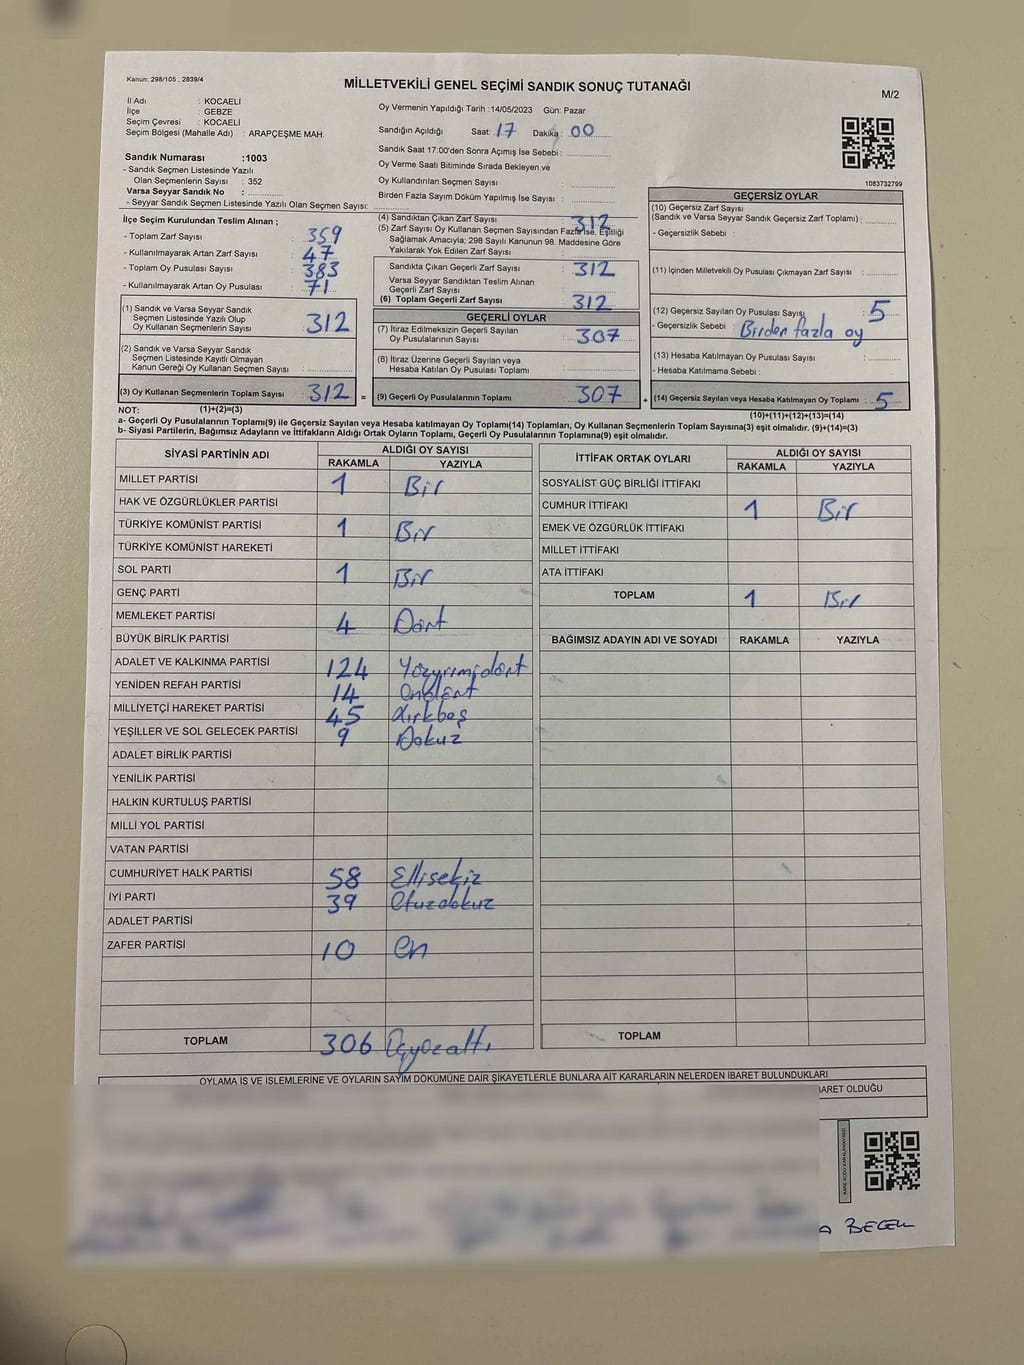 Kanun: 298/105 , 2839/4
MİLLETVEKİLİ GENEL SEÇİMİ SANDIK SONUÇ TUTANAĞI
M/2
İl Adı : KOCAELİ
İlçe : GEBZE
Seçim Çevresi : KOCAELİ
Seçim Bölgesi (Mahalle Adı) : ARAPÇEŞME MAH.
Sandık Numarası :1003
- Sandık Seçmen Listesinde Yazılı
Olan Seçmenlerin Sayısı : 352
Varsa Seyyar Sandık No :
- Seyyar Sandık Seçmen Listesinde Yazılı Olan Seçmen Sayısı:
Oy Vermenin Yapıldığı Tarih :14/05/2023 Gün: Pazar
Sandığın Açıldığı Saat: 17 Dakika: 00
Sandık Saat 17:00'den Sonra Açımış İse Sebebi:
Oy Verme Saati Bitiminde Sırada Bekleyen ve
Oy Kullandırılan Seçmen Sayısı :
Birden Fazla Sayım Döküm Yapılmış İse Sayısı :
1083732799
İlçe Seçim Kurulundan Teslim Alınan ;
- Toplam Zarf Sayısı : 359
- Kullanılmayarak Artan Zarf Sayısı : 47
- Toplam Oy Pusulası Sayısı : 383
- Kullanılmayarak Artan Oy Pusulası : 71
(1) Sandık ve Varsa Seyyar Sandık
Seçmen Listesinde Yazılı Olup
Oy Kullanan Seçmenlerin Sayısı : 312
(2) Sandık ve Varsa Seyyar Sandık
Seçmen Listesinde Kayıtlı Olmayan
Kanun Gereği Oy Kullanan Seçmen Sayısı :
(3) Oy Kullanan Seçmenlerin Toplam Sayısı : 312 =
(4) Sandıktan Çıkan Zarf Sayısı : 312
(5) Zarf Sayısı Oy Kullanan Seçmen Sayısından Fazla İse, Eşitliği
Sağlamak Amacıyla; 298 Sayılı Kanunun 98. Maddesine Göre
Yakılarak Yok Edilen Zarf Sayısı :
Sandıkta Çıkan Geçerli Zarf Sayısı : 312
Varsa Seyyar Sandıktan Teslim Alınan
Geçerli Zarf Sayısı :
(6) Toplam Geçerli Zarf Sayısı : 312
GEÇERLİ OYLAR
(7) İtiraz Edilmeksizin Geçerli Sayılan
Oy Pusulalarının Sayısı : 307
(8) İtiraz Üzerine Geçerli Sayılan veya
Hesaba Katılan Oy Pusulası Toplamı :
(9) Geçerli Oy Pusulalarının Toplamı : 307 +
GEÇERSİZ OYLAR
(10) Geçersiz Zarf Sayısı
(Sandık ve Varsa Seyyar Sandık Geçersiz Zarf Toplamı) :
- Geçersizlik Sebebi :
(11) İçinden Milletvekili Oy Pusulası Çıkmayan Zarf Sayısı :
(12) Geçersiz Sayılan Oy Pusulası Sayısı : 5
- Geçersizlik Sebebi : Birden fazla oy
(13) Hesaba Katılmayan Oy Pusulası Sayısı :
- Hesaba Katılmama Sebebi :
(14) Geçersiz Sayılan veya Hesaba Katılmayan Oy Toplamı : 5
NOT: (1)+(2)=(3)
(10)+(11)+(12)+(13)=(14)
a- Geçerli Oy Pusulalarının Toplamı(9) ile Geçersiz Sayılan veya Hesaba katılmayan Oy Toplamı(14) Toplamları, Oy Kullanan Seçmenlerin Toplam Sayısına(3) eşit olmalıdır. (9)+(14)=(3)
b- Siyasi Partilerin, Bağımsız Adayların ve İttifakların Aldığı Ortak Oyların Toplamı, Geçerli Oy Pusulalarının Toplamına(9) eşit olmalıdır.
SİYASİ PARTİNİN ADI ALDIĞI OY SAYISI
RAKAMLA YAZIYLA
MİLLET PARTİSİ 1 Bir
HAK VE ÖZGÜRLÜKLER PARTİSİ
TÜRKİYE KOMÜNİST PARTİSİ 1 Bir
TÜRKİYE KOMÜNİST HAREKETİ
SOL PARTİ 1 Bir
GENÇ PARTİ
MEMLEKET PARTİSİ 4 Dört
BÜYÜK BİRLİK PARTİSİ
ADALET VE KALKINMA PARTİSİ 124 Yüzyirmidört
YENİDEN REFAH PARTİSİ 14 Ondört
MİLLİYETÇİ HAREKET PARTİSİ 45 Kırkbeş
YEŞİLLER VE SOL GELECEK PARTİSİ 9 Dokuz
ADALET BİRLİK PARTİSİ
YENİLİK PARTİSİ
HALKIN KURTULUŞ PARTİSİ
MİLLİ YOL PARTİSİ
VATAN PARTİSİ
CUMHURİYET HALK PARTİSİ 58 Ellisekiz
İYİ PARTİ 39 Otuzdokuz
ADALET PARTİSİ
ZAFER PARTİSİ 10 On
TOPLAM 306 Üçyüzaltı
İTTİFAK ORTAK OYLARI ALDIĞI OY SAYISI
RAKAMLA YAZIYLA
SOSYALİST GÜÇ BİRLİĞİ İTTİFAKI
CUMHUR İTTİFAKI 1 Bir
EMEK VE ÖZGÜRLÜK İTTİFAKI
MİLLET İTTİFAKI
ATA İTTİFAKI
TOPLAM 1 Bir
BAĞIMSIZ ADAYIN ADI VE SOYADI RAKAMLA YAZIYLA
TOPLAM
OYLAMA İŞ VE İŞLEMLERİNE VE OYLARIN SAYIM DÖKÜMÜNE DAİR ŞİKAYETLERLE BUNLARA AİT KARARLARIN NELERDEN İBARET BULUNDUKLARI
BARET OLDUĞU
KARE KODU KARALAMAYINIZ!